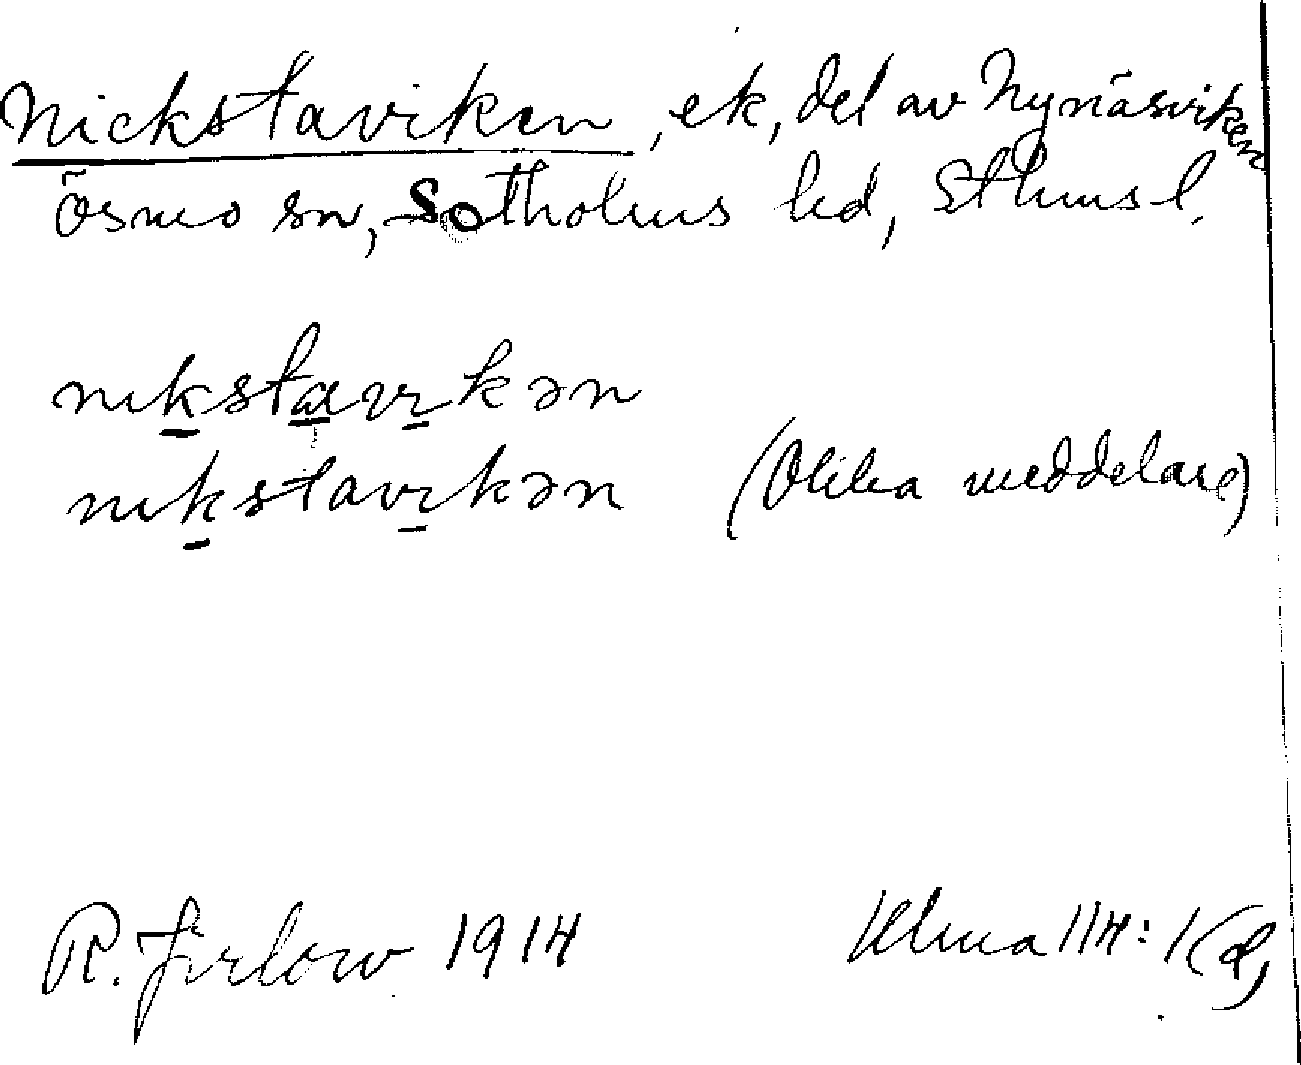 Nickstaviken, ek, del av Nynäsviken
Ösmo sn, Sotholms hd, Sthms l.
nıkstavıkən
nıkstavıkən (Olika meddelare)
R. Jirlow 1914 Ulma 114:1(d)